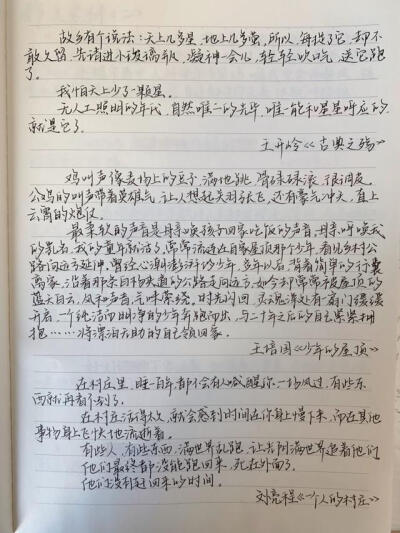 故乡有个说法：天上几多星，地上几多萤，所以，每捉了它，却不
敢久留，先请进小玻璃瓶，凝神一会儿，轻轻吹口气，送它跑
了。
我怕天上少了一颗星。
无人工照明的年代，自然唯一的光华，唯一能和星星呼应的，
就是它了。
王开岭《古典之殇》
鸡叫声像麦场上的豆子，满地跳，骨碌碌滚，很调皮，
公鸡的叫声带着英雄气，让人想起关羽张飞，还有豪气冲天，直上
云霄的炮仗。
最柔软的声音是母亲唤孩子回家吃饭的声音，母亲呼唤我
的乳名，我的童年就活了，常常流连在自家屋顶那个少年，看见乡村公
路向远方延伸，曾经心潮澎湃的少年，多年以后，背着简单的行囊
离家，沿着那条白杨夹道的公路走向远方，如今却常常被屋顶的
蓝天白云，风和声音，气味萦绕，时光闪回，灵魂深处有扇门缓缓
开启，一个纯洁而明净的少年奔跑而出，与二十年之后的自己紧紧拥
抱……将漂泊无助的自己领回家。
王培国《少年的屋顶》
在村庄里，睡一百年都不会有人喊醒你，一场风过，有些东
西就再看不到了。
在村庄活得久，就会感到时间在你身上慢下来，而在其他
事物身上飞快地流逝着。
有些人，有些东西，满世界乱跑，让光阴满世界追着他们
他们最终都没能跑回来，死在外面了。
他们没有赶回来的时间。
刘亮程《一个人的村庄》